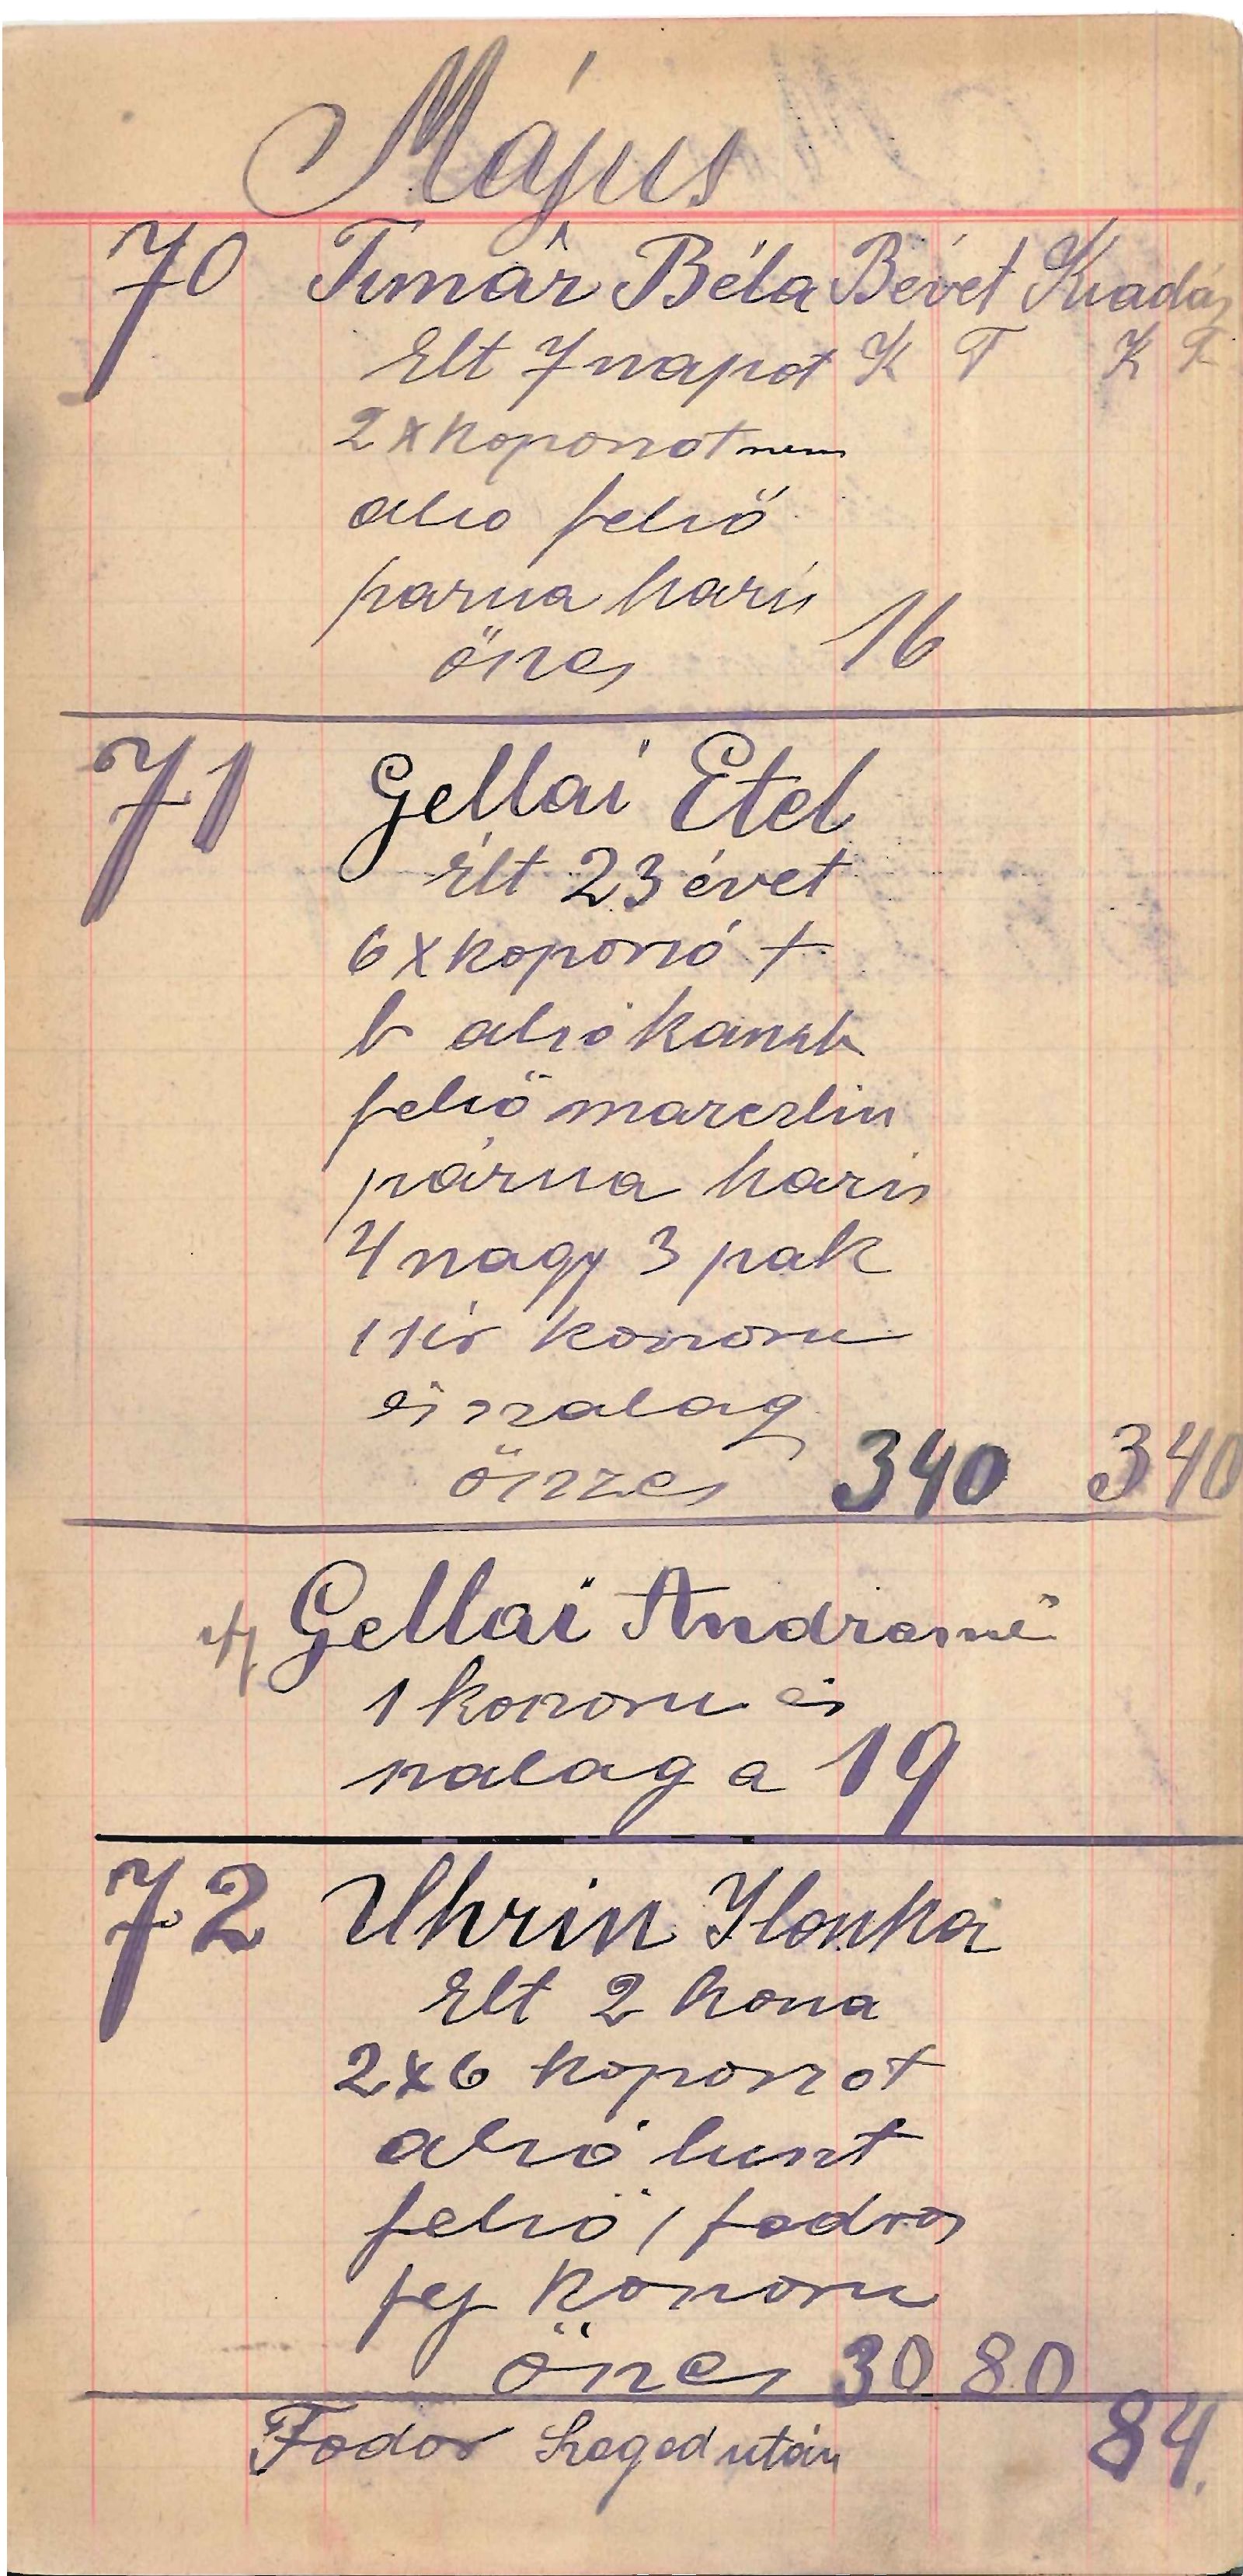 Május
70 Timár Béla Bevét Kiadás
Élt 7 napot K F K F
2 x koporsot nem
alsó felső
parna haris
öszes 16
71 Gellai Etel
Élt 23 évet
6 x koporsó +
b alsó kansh
felső marczlin
párna haris
4 nagy 3 pak
1 sir koszoru
és szalag
öszzes 340 340
ifj Gellai Andrasné
1 koszoru és
szalag a 19
72 Uhrin Ilonka
Elt 2 hona
2x6 koporszot
alsó luszt
felső 1 fodros
fej koszoru
öszes 30 80
Fodor Szeged után 84.